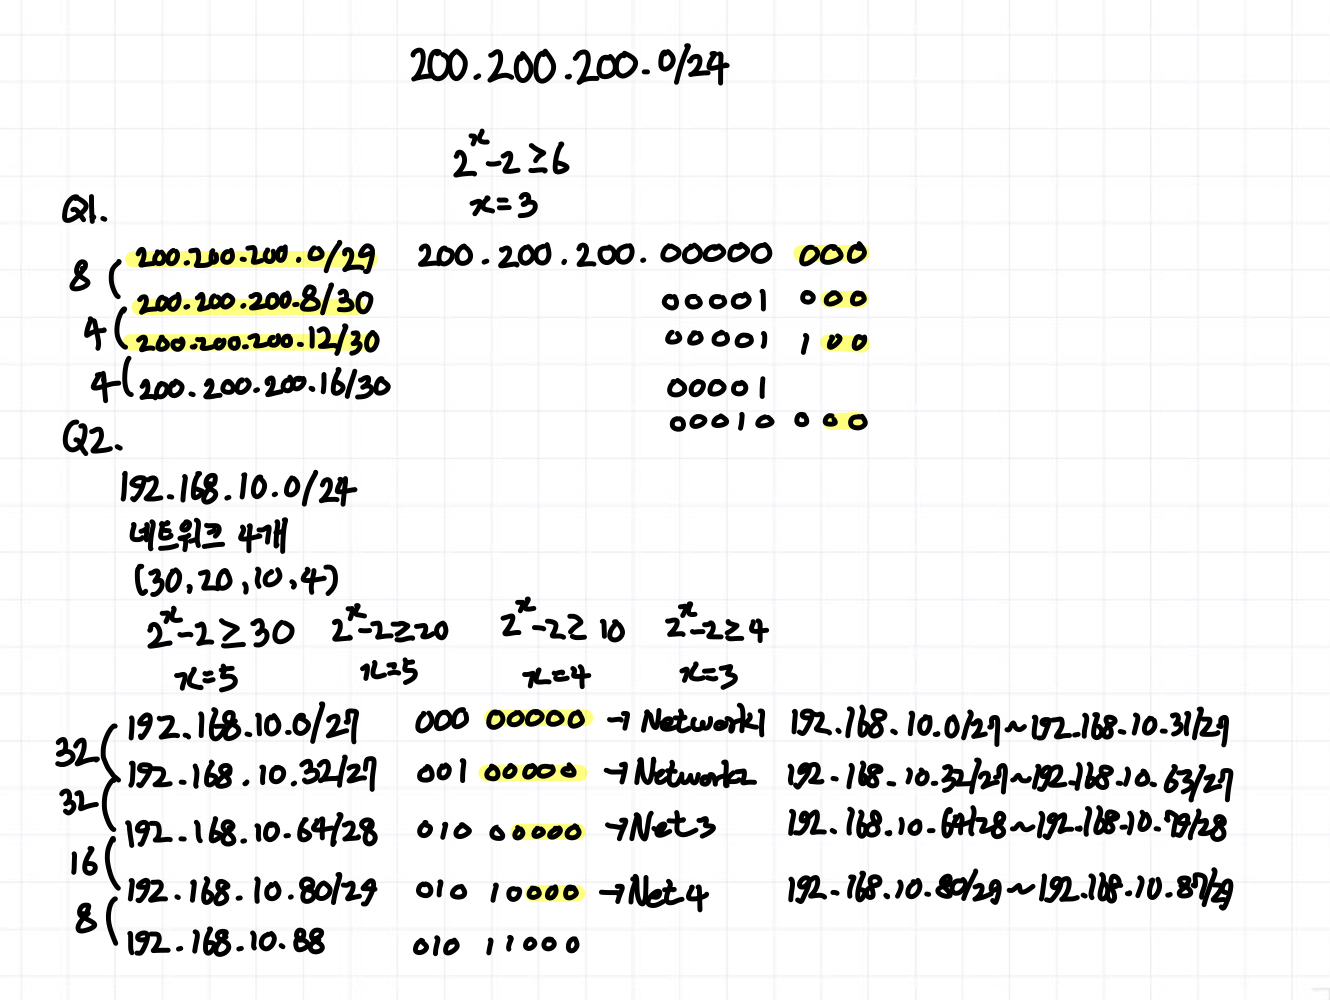 200.200.200.0/24
2^x-2≥6
x=3
Q1.
8 200.200.200.0/29 200.200.200.00000 000
200.200.200.8/30 00001 000
4 200.200.200.12/30 00001 100
4 200.200.200.16/30 00001
00010 000
Q2.
192.168.10.0/24
네트워크 4개
(30,20,10,4)
2^x-2≥30 2^x-2≥20 2^x-2≥10 2^x-2≥4
x=5 x=5 x=4 x=3
192.168.10.0/27 000 00000 → Network1 192.168.10.0/27~192.168.10.31/27
32
192.168.10.32/27 001 00000 → Network2 192.168.10.32/27~192.168.10.63/27
32
192.168.10.64/28 010 00000 → Net3 192.168.10.64/28~192.168.10.79/28
16
192.168.10.80/29 010 10000 → Net4 192.168.10.80/29~192.168.10.87/29
8
192.168.10.88 010 11000